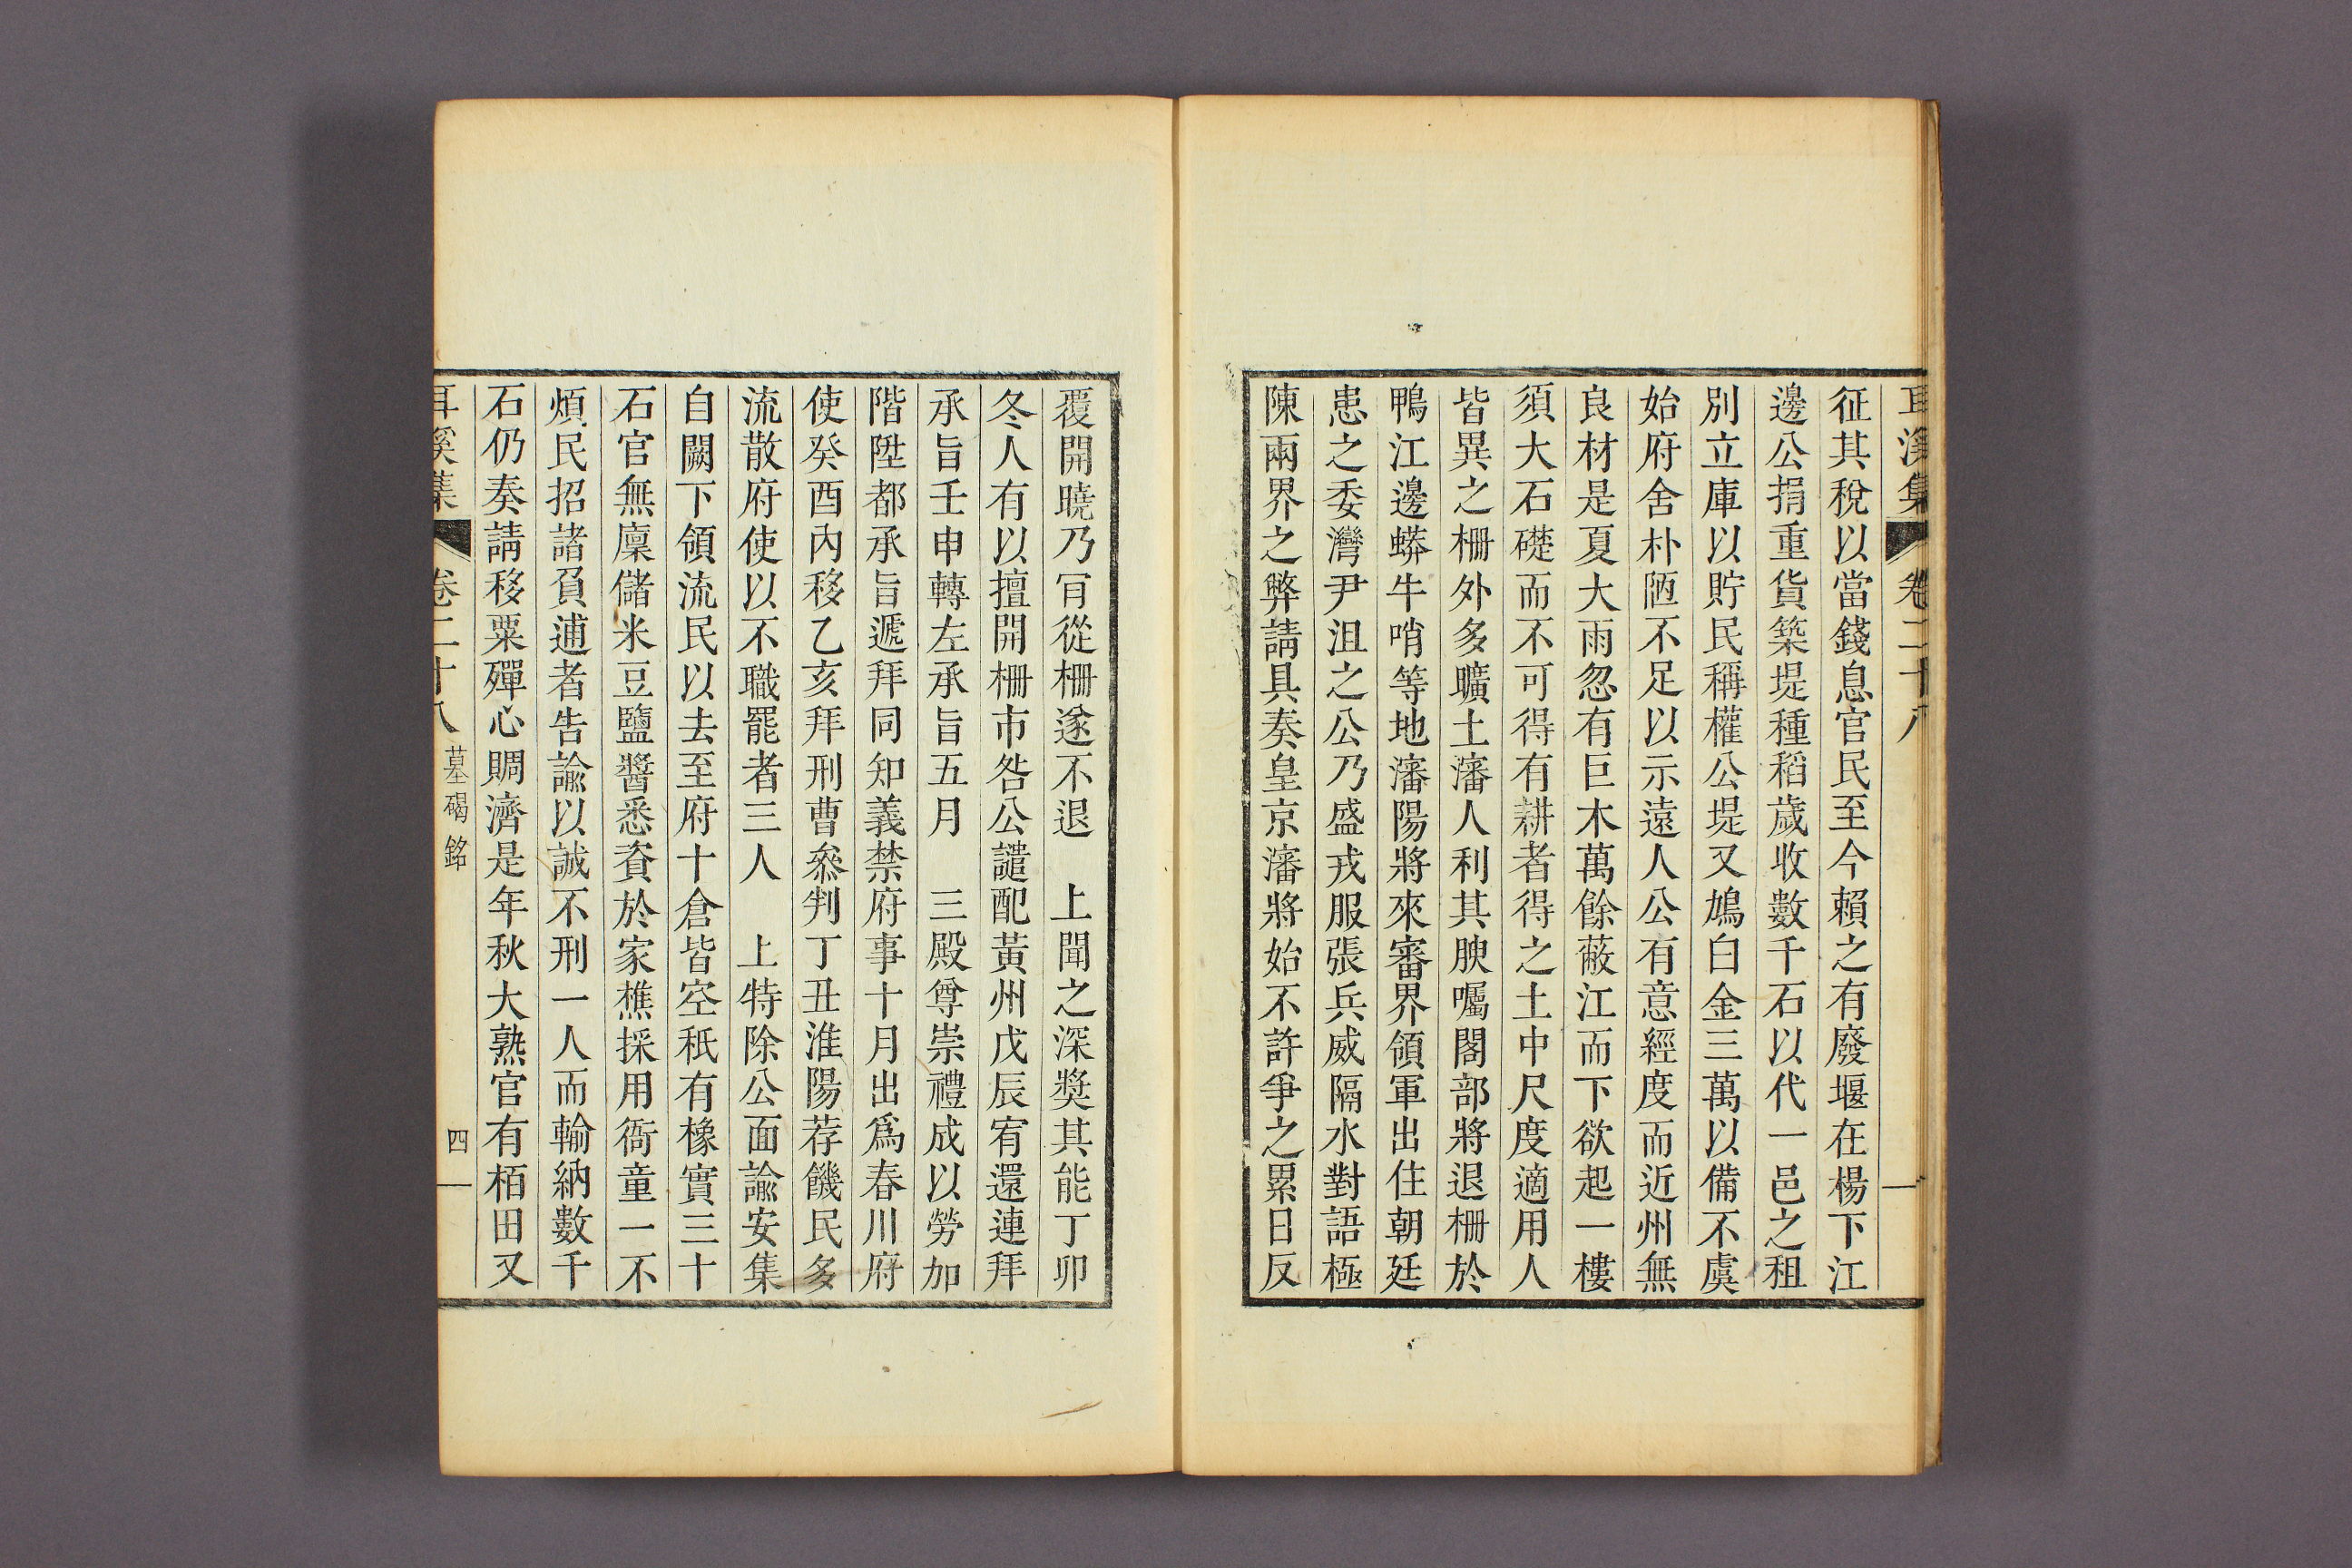 耳溪集 卷二十八
征其稅以當錢息官民至今賴之有廢堰在楊下江
邊公捐重貨築堤種稻歲收數千石以代一邑之租
別立庫以貯民稱權公堤又鳩白金三萬以備不虞
始府舍朴陋不足以示遠人公有意經度而近州無
良材是夏大雨忽有巨木萬餘蔽江而下欲起一樓
須大石礎而不可得有耕者得之土中尺度適用人
皆異之柵外多曠土瀋人利其腴囑閣部將退柵於
鴨江邊蟒牛哨等地瀋陽將來審界領軍出住朝廷
患之委灣尹沮之公乃盛戎服張兵威隔水對語極
陳兩界之弊請具奏皇京瀋將始不許爭之累日反
覆開曉乃肎從柵遂不退 上聞之深獎其能丁卯
冬人有以擅開柵市咎公譴配黃州戊辰宥還連拜
承旨壬申轉左承旨五月 三殿尊崇禮成以勞加
階陞都承旨遞拜同知義禁府事十月出爲春川府
使癸酉內移乙亥拜刑曹叅判丁丑淮陽荐饑民多
流散府使以不職罷者三人 上特除公面諭安集
自闕下領流民以去至府十倉皆空秖有橡實三十
石官無廩儲米豆鹽醬悉資於家樵採用衙童一不
煩民招諸負逋者告諭以誠不刑一人而輸納數千
石仍奏請移粟殫心賙濟是年秋大熟官有栢田又
耳溪集 卷二十八 墓碣銘 四